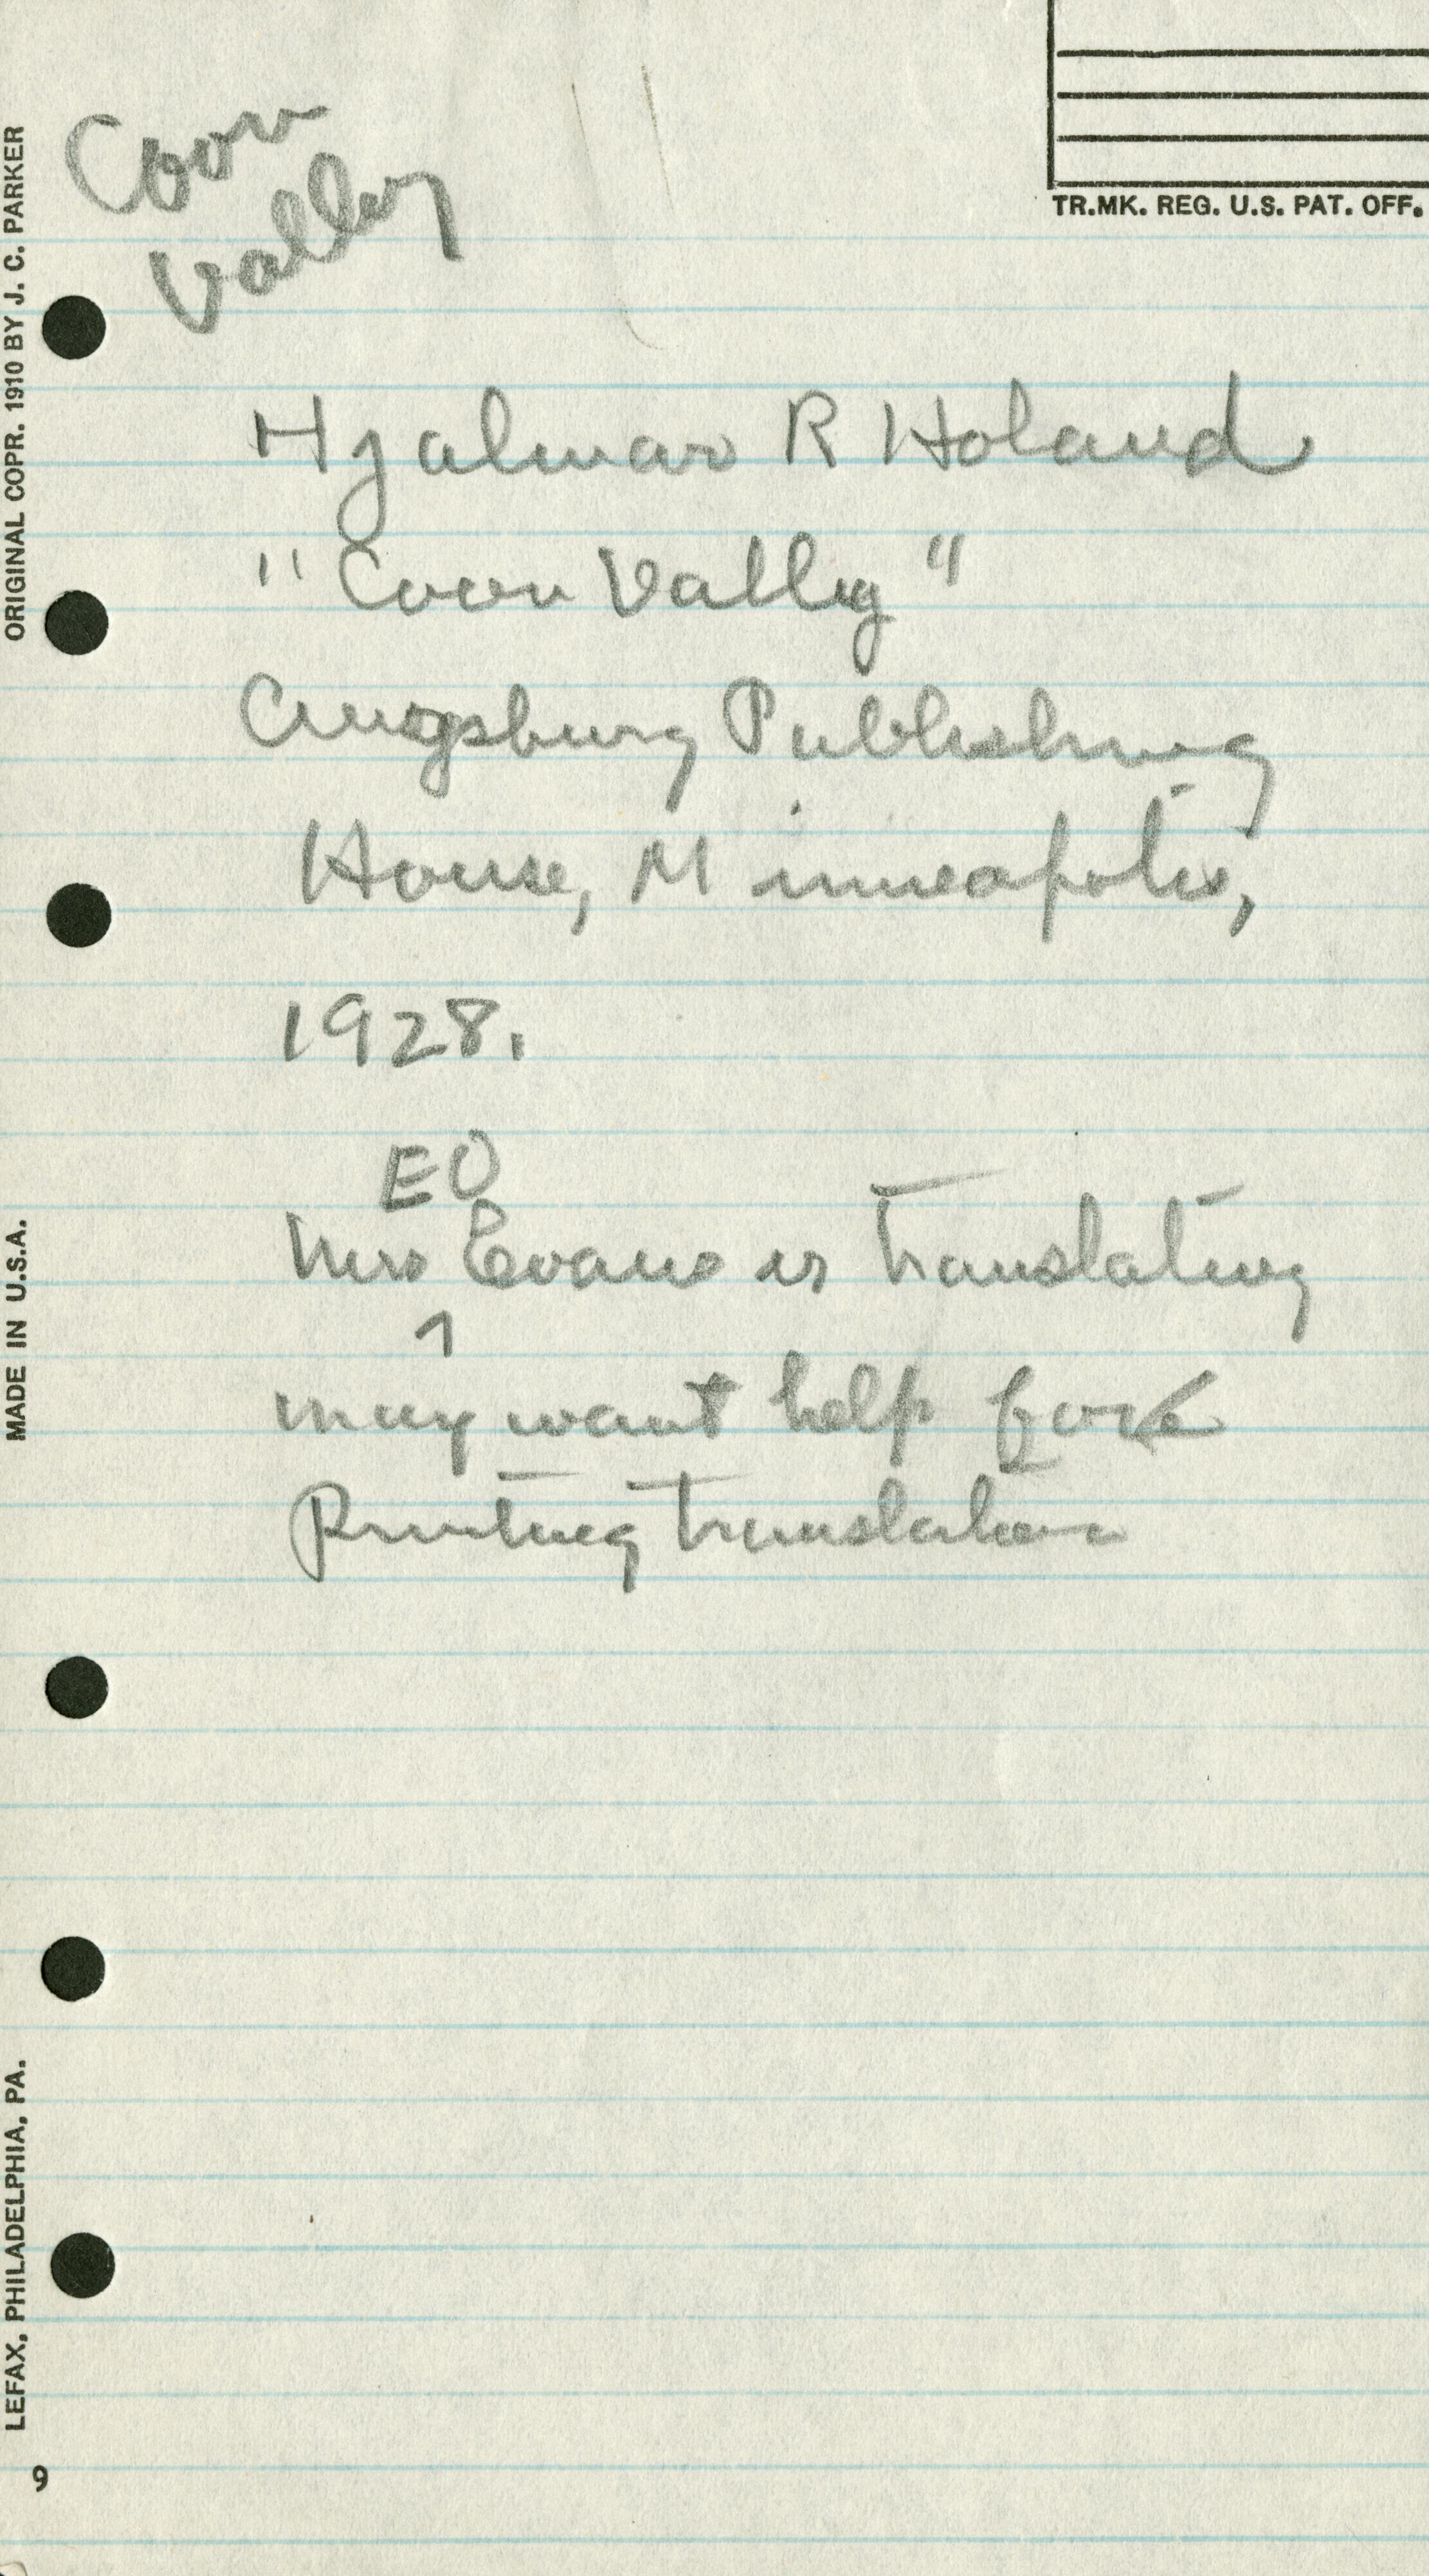 Coon
Valley
TR.MK. REG. U.S. PAT. OFF.
ORIGINAL COPR. 1910 BY J. C. PARKER
Hjalmar R Holand
"Coon Valley"
Augsburg Publishing
House, Minneapolis,
1928.
EO
Mrs ^ Evans is translating
may want help for
Printing translation
MADE IN U.S.A.
LEFAX, PHILADELPHIA, PA.
9